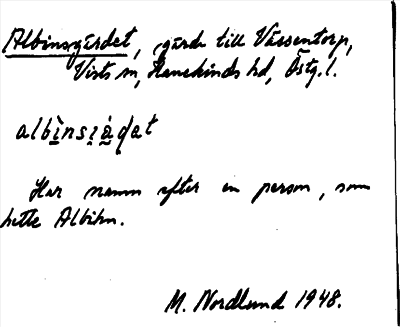 Albinsgärdet, gärde till Vässentorp,
Vists sn, Hanekinds hd, Östg. l.
albinsjädat
Har namn efter en person, som
hette Albihn.
M. Nordlund 1948.